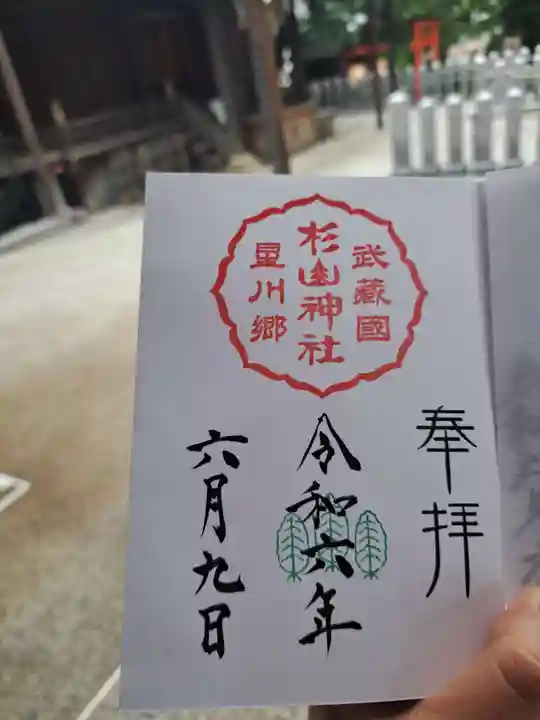 武蔵國
杉山神社
星川郷
奉拝
令和六年
六月九日